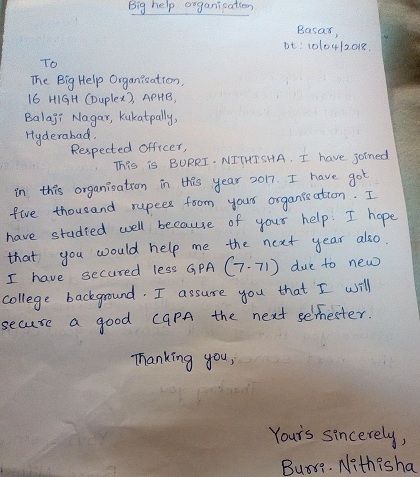 Big help organisation
Basar,
Dt: 10/04/2018.
To
The Big Help Organisation,
16 HIGH (Duplex), APHB,
Balaji Nagar, Kukatpally,
Hyderabad.
Respected Officer,
This is BURRI. NITHISHA. I have joined
in this organisation in this year 2017. I have got
five thousand rupees from your organisation. I
have studied well because of your help. I hope
that you would help me the next year also.
I have secured less GPA (7.71) due to new
college background. I assure you that I will
secure a good CGPA the next semester.
Thanking you,
Your's sincerely,
Burri. Nithisha